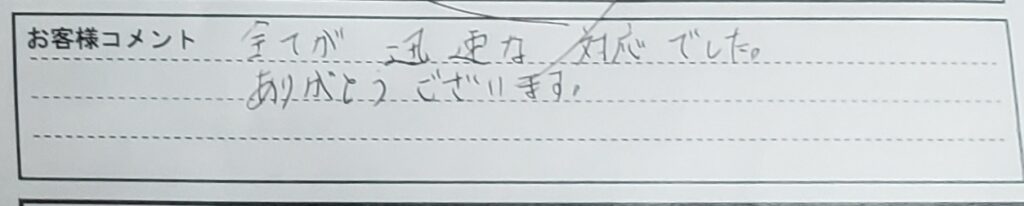 お客様コメント 全てが 迅速な 対応でした。
ありがとうございます。